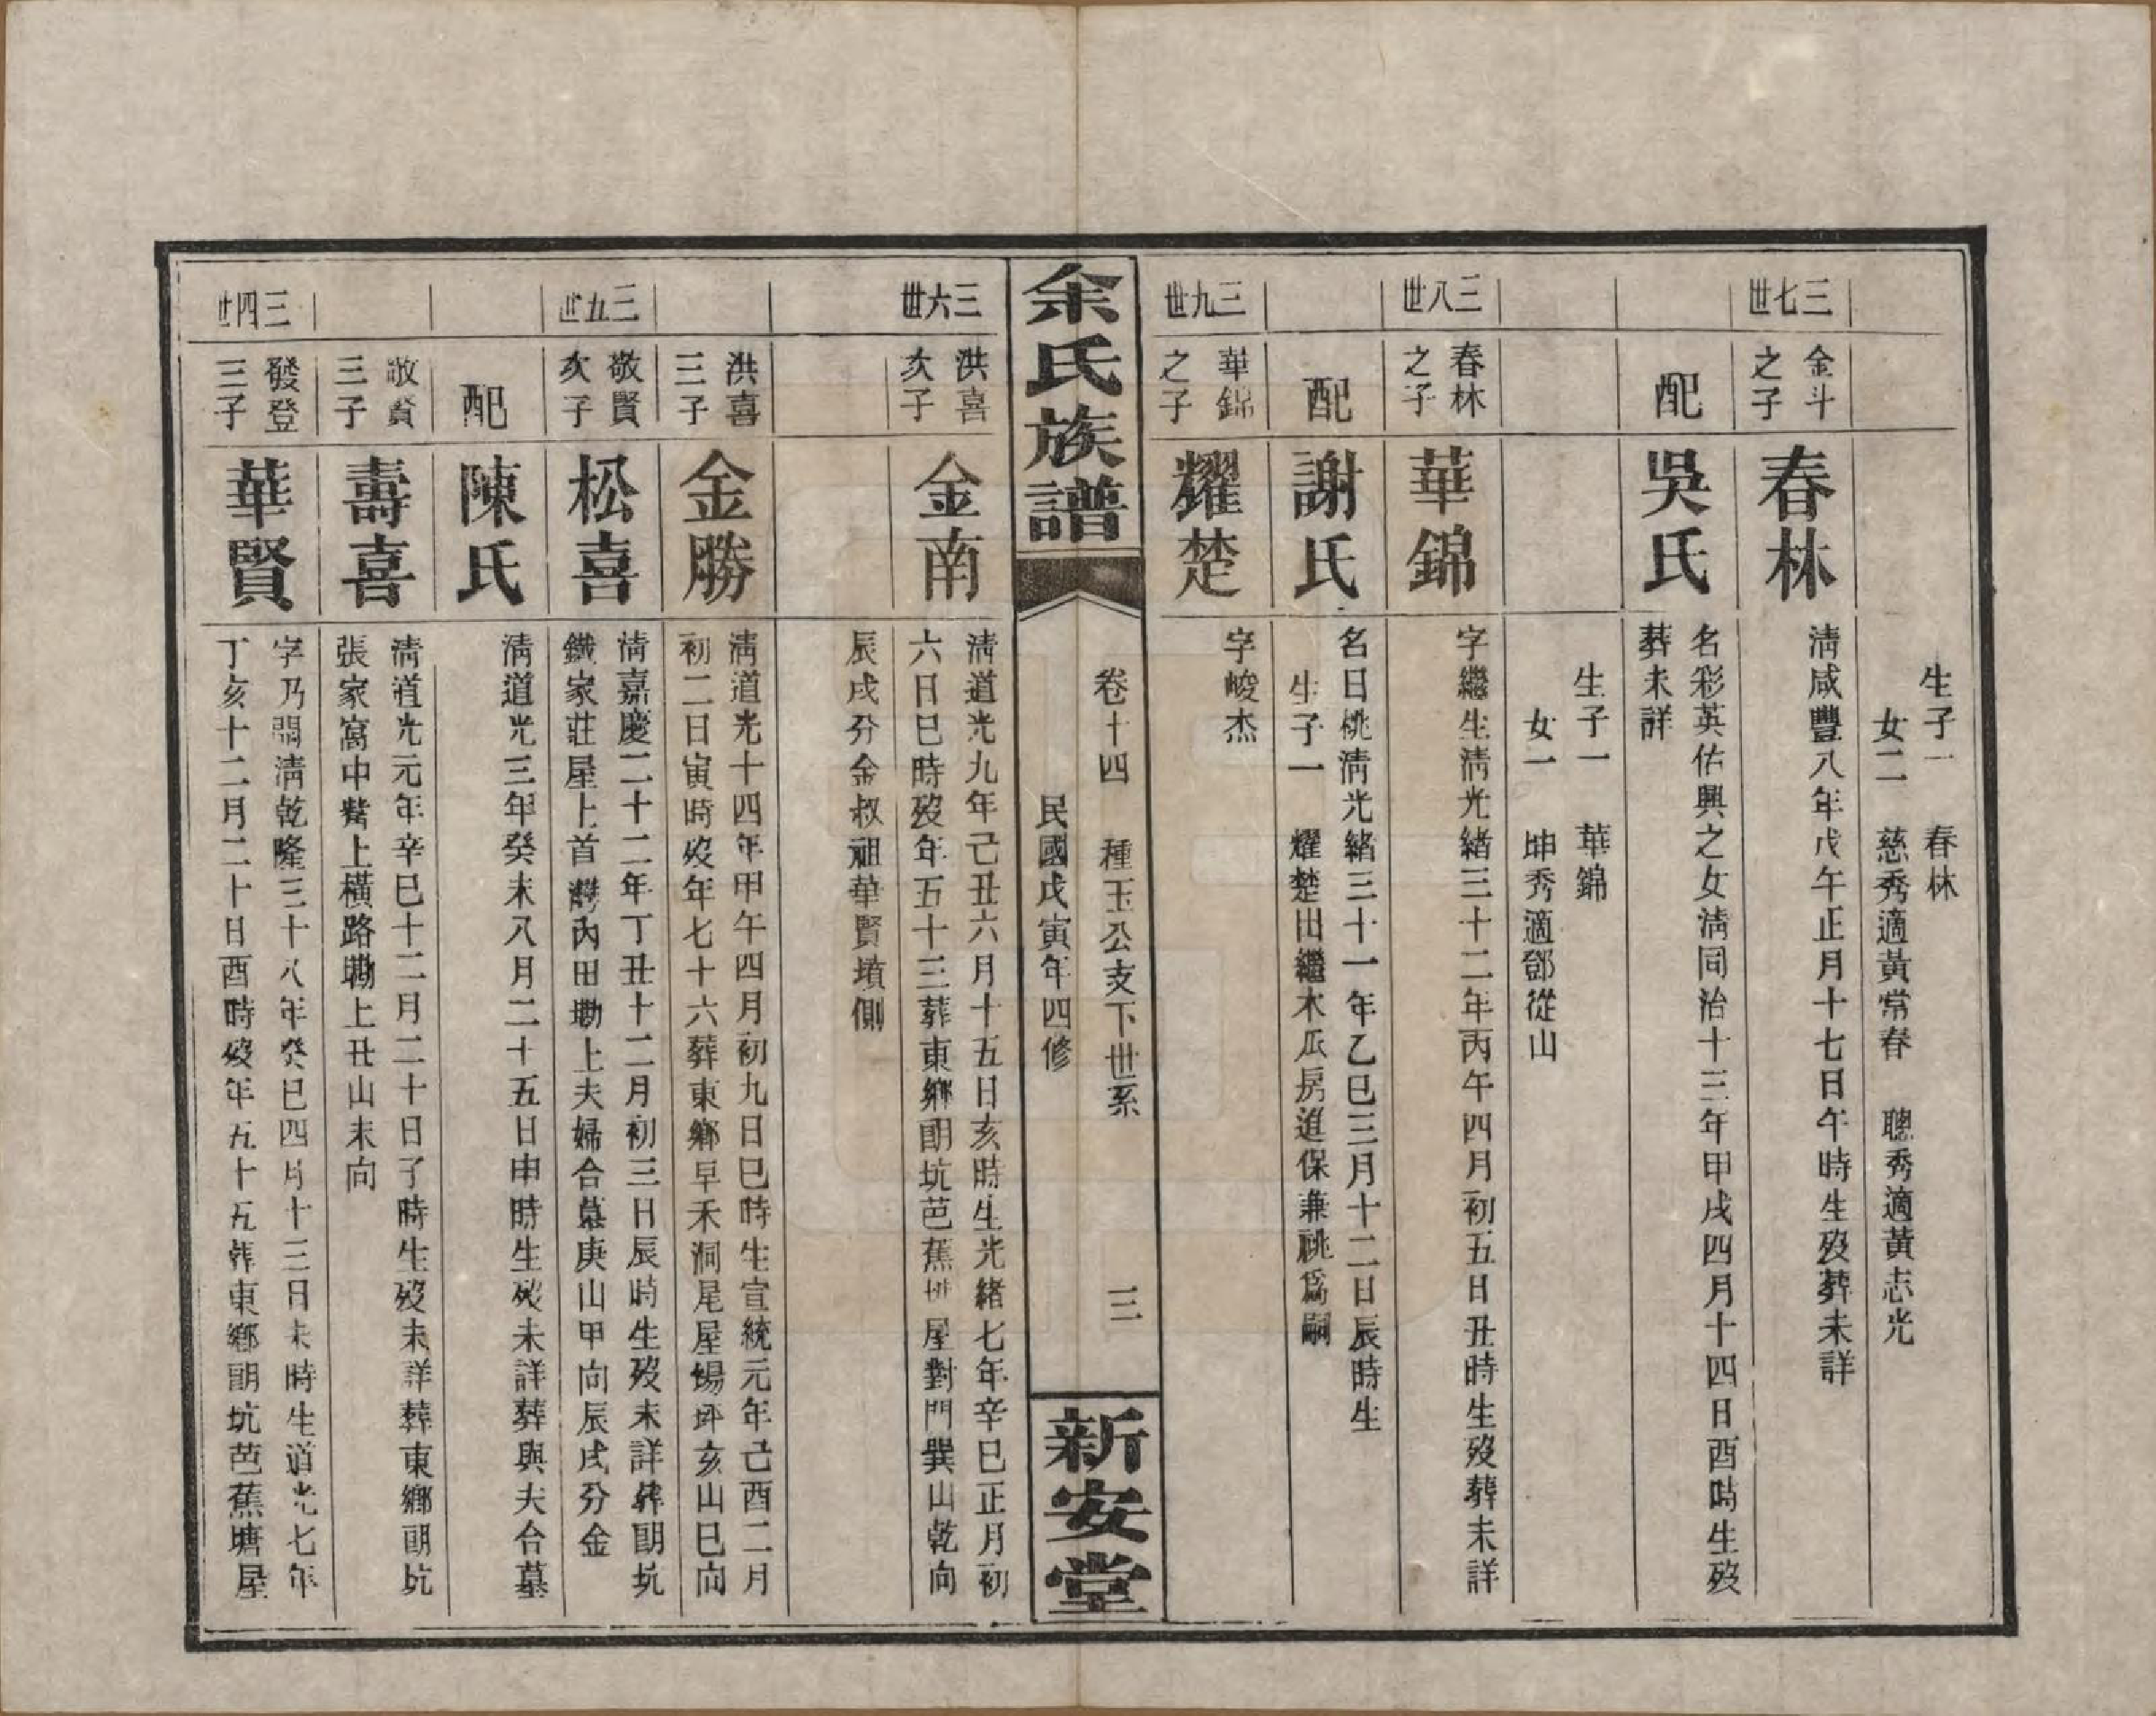 生子一　春林
女二　慈秀適黃常春　聰秀適黃志光
三七世
金斗
之子
春林
淸咸豐八年戊午正月十七日午時生歿葬未詳
配
吳氏
名彩英佑興之女淸同治十三年甲戌四月十四日酉時生歿
葬未詳
生子一　華錦
女一　坤秀適鄧從山
三八世
春林
之子
華錦
字繼生淸光緒三十二年丙午四月初五日丑時生歿葬未詳
配
謝氏
名日桃淸光緒三十一年乙巳三月十二日辰時生
生子一　耀楚出繼木瓜房進保兼祧爲嗣
三九世
華錦
之子
耀楚
字峻杰
余氏族譜
卷十四　種玉公支下世系　三
民國戊寅年四修
新安堂
三六世
洪喜
次子
金南
淸道光九年己丑六月十五日亥時生光緒七年辛巳正月初
六日巳時歿年五十三葬東鄉朙坑芭蕉塘屋對門巽山乾向
辰戌分金叔祖華賢墳側
洪喜
三子
金勝
淸道光十四年甲午四月初九日巳時生宣統元年己酉二月
初二日寅時歿年七十六葬東鄉早禾洞尾屋場坪亥山巳向
三五世
敬賢
次子
松喜
淸嘉慶二十二年丁丑十二月初三日辰時生歿未詳葬朙坑
鐵家莊屋上首灣內田墈上夫婦合墓庚山甲向辰戌分金
配
陳氏
淸道光三年癸未八月二十五日申時生歿未詳葬與夫合墓
敬賢
三子
壽喜
淸道光元年辛巳十二月二十日子時生歿未詳葬東鄉朙坑
張家窩中嘴上橫路墈上丑山未向
三四世
發登
三子
華賢
字乃朙淸乾隆三十八年癸巳四月十三日未時生道光七年
丁亥十二月二十日酉時歿年五十五葬東鄉朙坑芭蕉塘屋